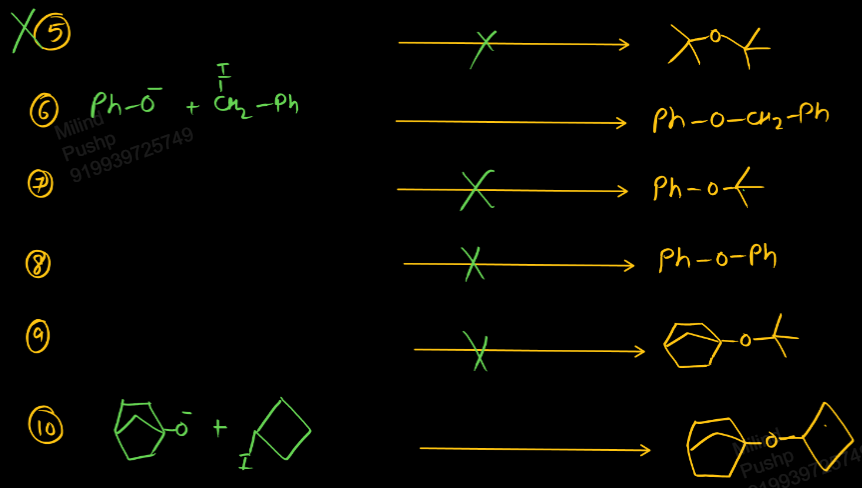 X ⑤ X O
⑥ Ph-O⁻ + CH₂-Ph Ph-O-CH₂-Ph
I
Milind
Pushp
919939725749
⑦ X Ph-O
⑧ X Ph-O-Ph
⑨ X O
⑩ O⁻ + I O
Milind
Pushp